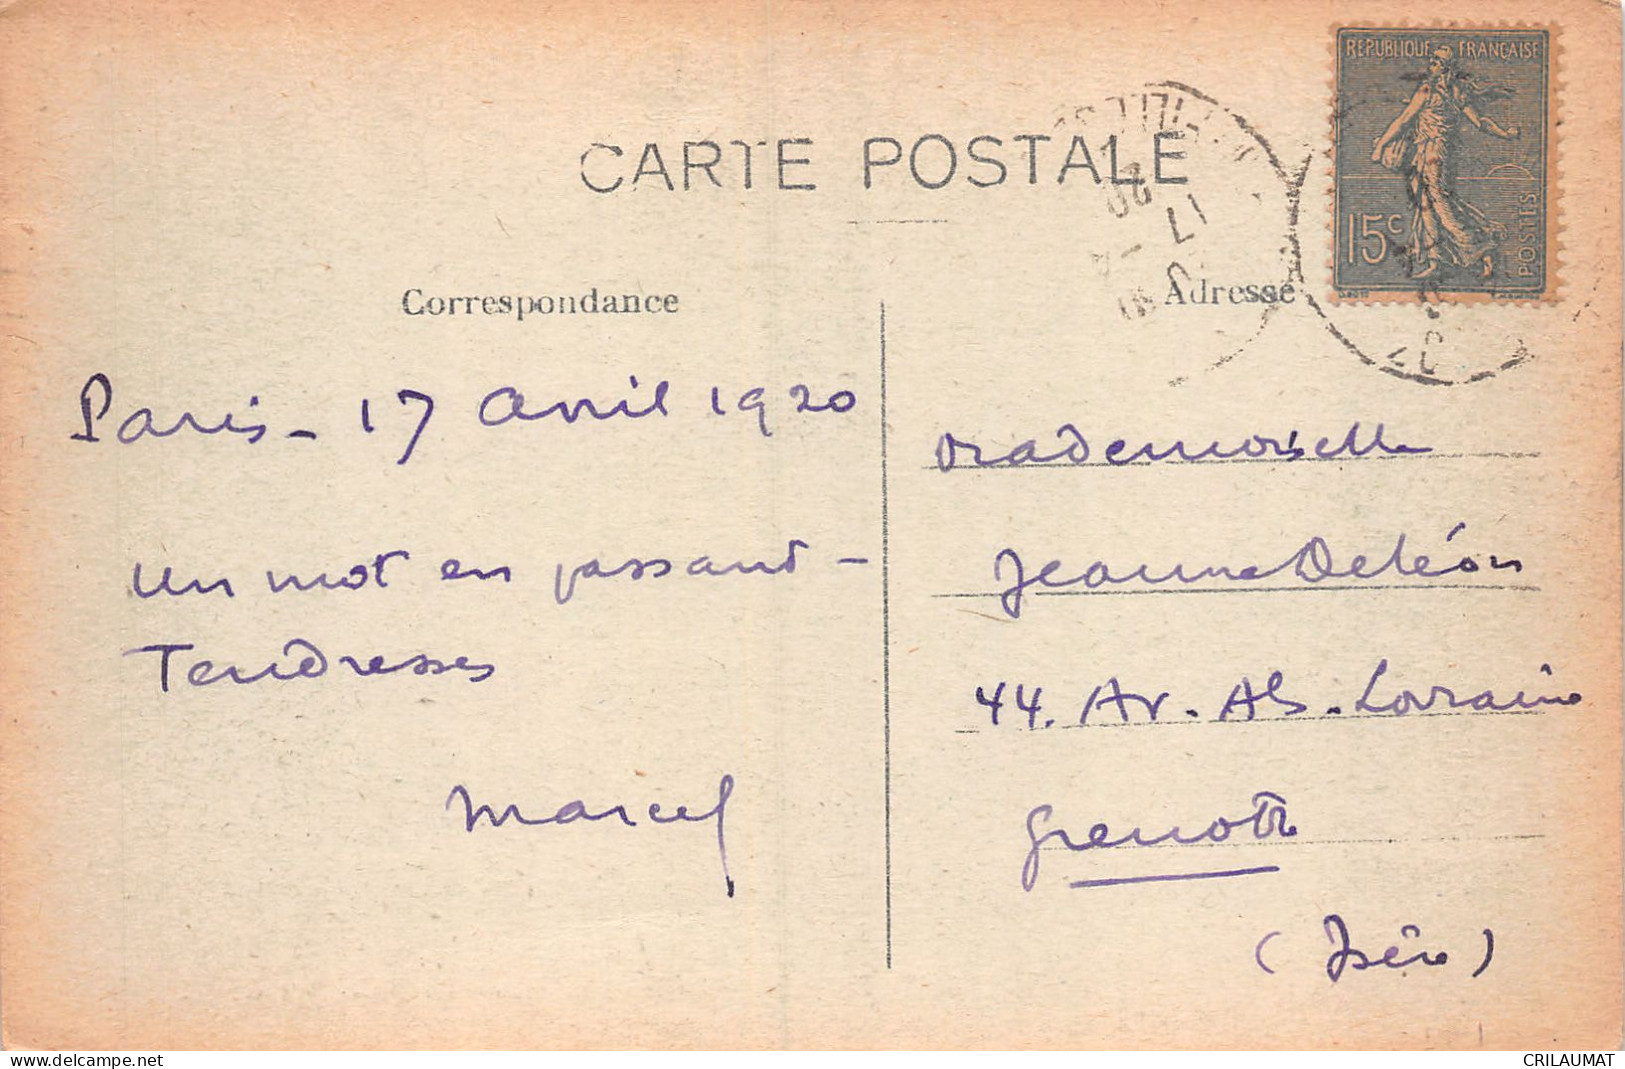 CARTE POSTALE
REPUBLIQUE FRANÇAISE
15c
POSTES
Correspondance
Adresse
Paris - 17 avril 1920
un mot en passant -
Tendresses
Marcel
Mademoiselle
Jeanne Deléon
44. Av. Als. Lorraine
Grenoble
(Isère)
delcampe.net
CRILAUMAT